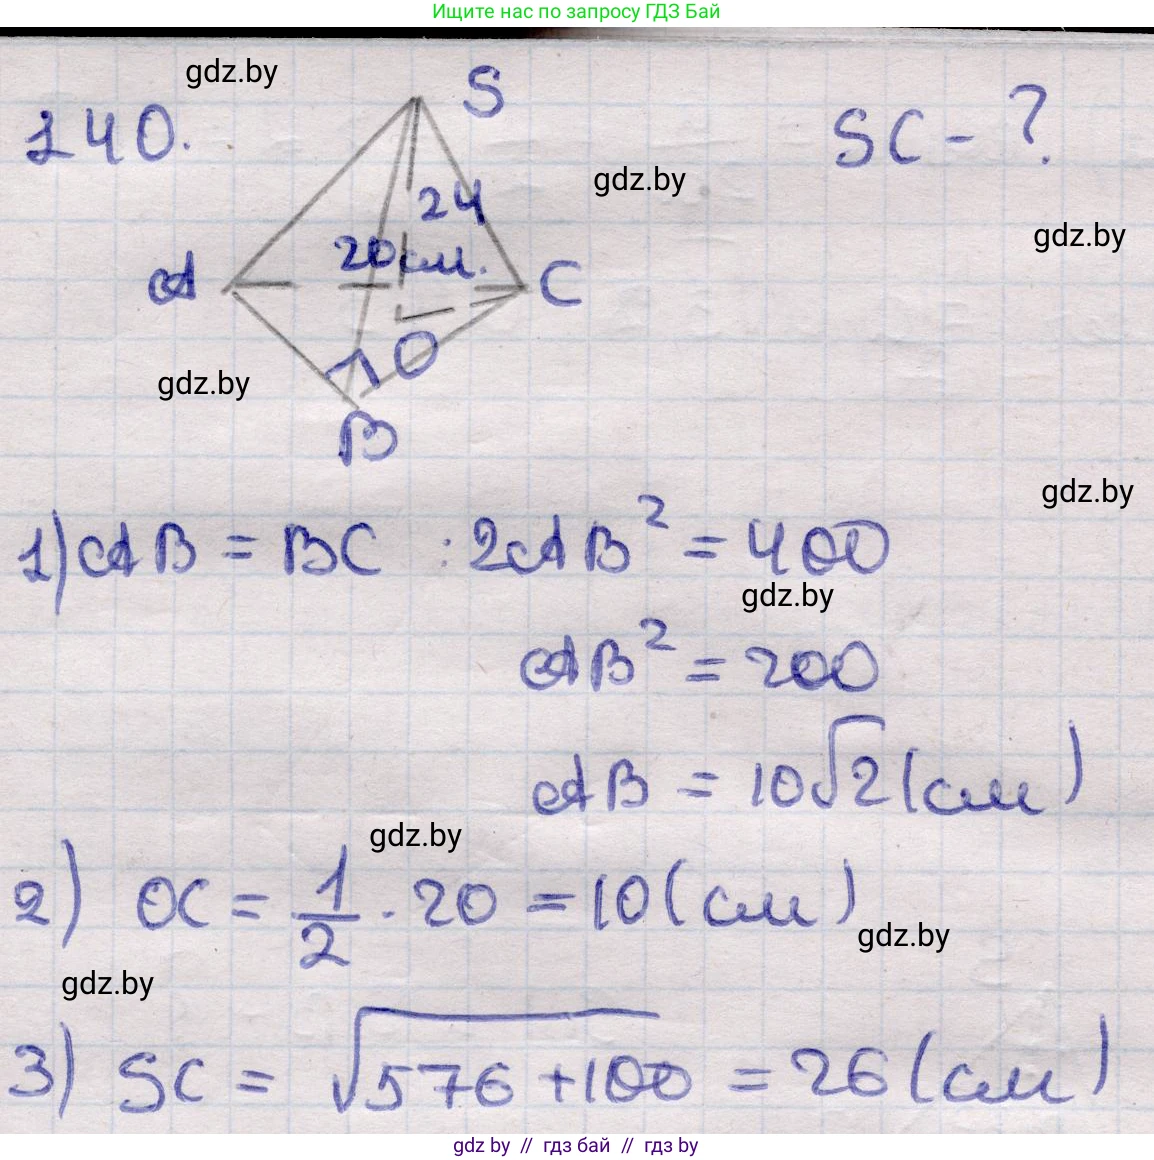 Ищите нас по запросу ГДЗ Бай
gdz.by
S
140.
SC - ?
24
gdz.by
gdz.by
20 см.
A
C
O
gdz.by
B
gdz.by
1) AB = BC : 2AB² = 400
gdz.by
AB² = 200
AB = 10√2 (см)
gdz.by
2) OC = 1/2 · 20 = 10 (см)
gdz.by
gdz.by
3) SC = √576 + 100 = 26 (см)
gdz by // гдз бай // гдз by